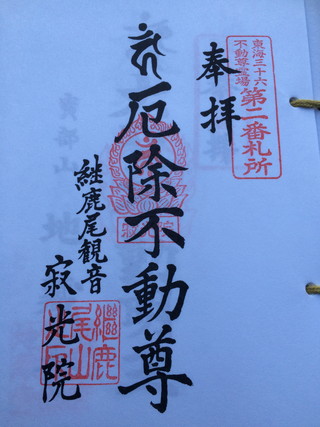 東海三十六
不動尊霊場
第二番札所
奉拝
厄除不動尊
継鹿尾観音
寂光院
繼鹿
尾山